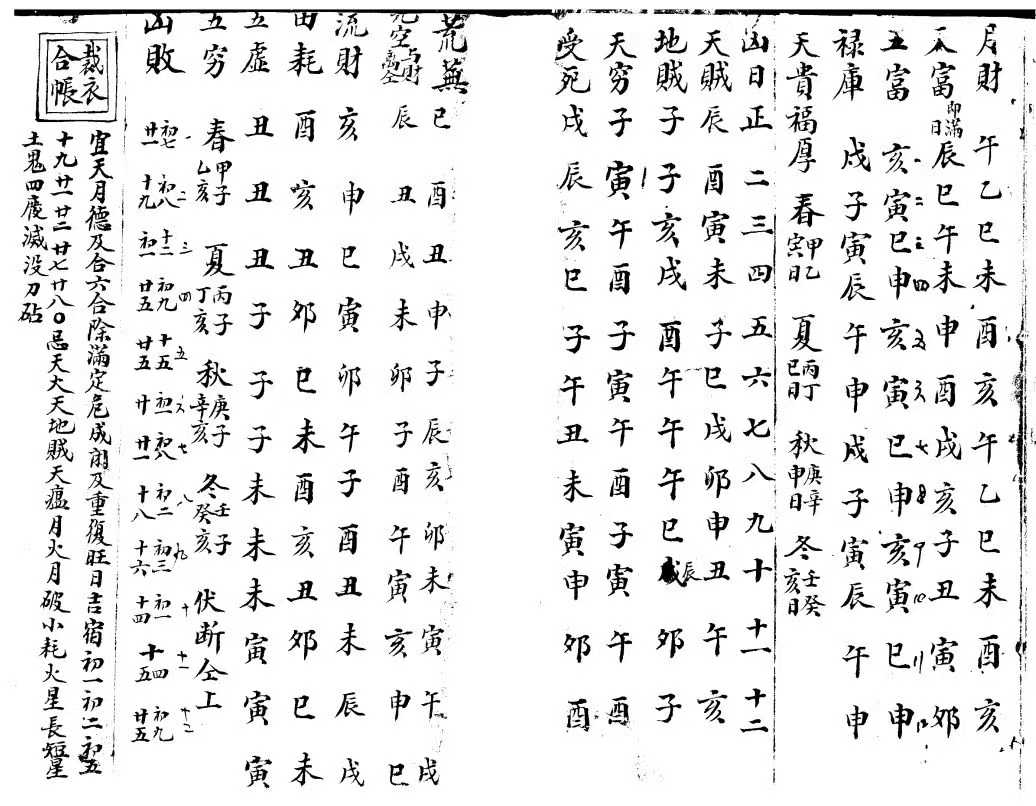 月財 午乙巳未酉亥午乙巳未酉亥
天富即滿日辰巳午未申酉戌亥子丑寅卯
五富 亥寅巳申亥寅巳申亥寅巳申
祿庫 戌子寅辰午申戌子寅辰午申
天貴福厚 春甲乙寅日 夏丙丁巳日 秋庚辛申日 冬壬癸亥日
凶日正二三四五六七八九十十一十二
天賊辰酉寅未子巳戌卯申丑午亥
地賊子子亥戌酉午午午巳辰卯子
天穷子寅午酉子寅午酉子寅午酉
受死戌辰亥巳子午丑未寅申卯酉
荒蕪巳酉丑申子辰亥卯未寅午戌
辰丑戌未卯子酉午寅亥申巳
流財亥申巳寅卯午子酉丑未辰戌
田耗酉亥丑卯巳未酉亥丑卯巳未
五虛丑丑丑子子子未未未寅寅寅
五穷 春甲子乙亥 夏丙子丁亥 秋庚子辛亥 冬壬子癸亥 伏断仝上
凶敗 一初七廿一 二初八十九 三十二初一 四初九廿五 五十五廿五 六初一廿 七初八廿一 八初二十八 九初三十六 十初一十四 十一十四十五 十二初九廿五
裁衣合帳
宜天月德及合六合除滿定危成開及重復旺日吉宿初一初二初五
十九廿一廿二廿七廿八〇忌天火天地賊天瘟月火月破小耗火星長短星
土鬼四廢滅没刀砧